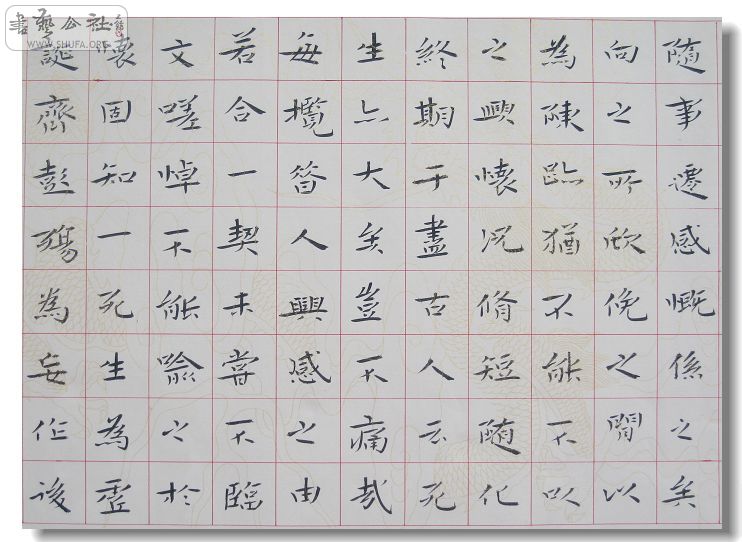 隨事遷感慨係之矣
向之所欣俛之閒以
為陳跡猶不能不以
之興懷況脩短隨化
終期于盡古人云死
生亦大矣豈不痛哉
每攬昔人興感之由
若合一契未嘗不臨
文嗟悼不能喻之於
懷固知一死生為虛
誕齊彭殤為妄作後
書藝公社
WWW.SHUFA.ORG